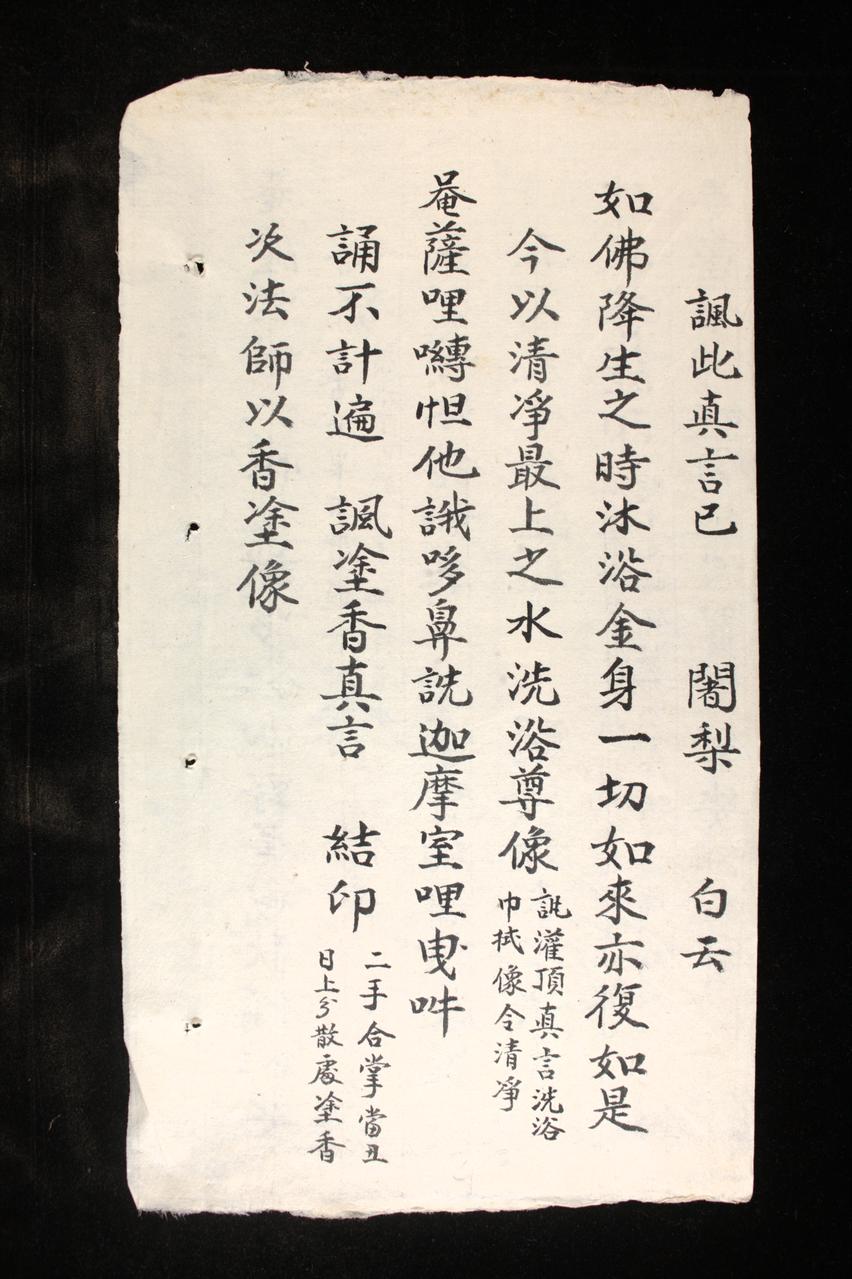 諷此真言已　闍梨　白云
如佛降生之時沐浴金身一切如來亦復如是
今以清淨最上之水洗浴尊像
誐灌頂真言洗浴
巾拭像令清淨
唵薩哩嚩怛他誐哆鼻詵迦摩室哩曳吽
誦不計遍　諷塗香真言　結印
二手合掌當丑
日上分散處塗香
次法師以香塗像